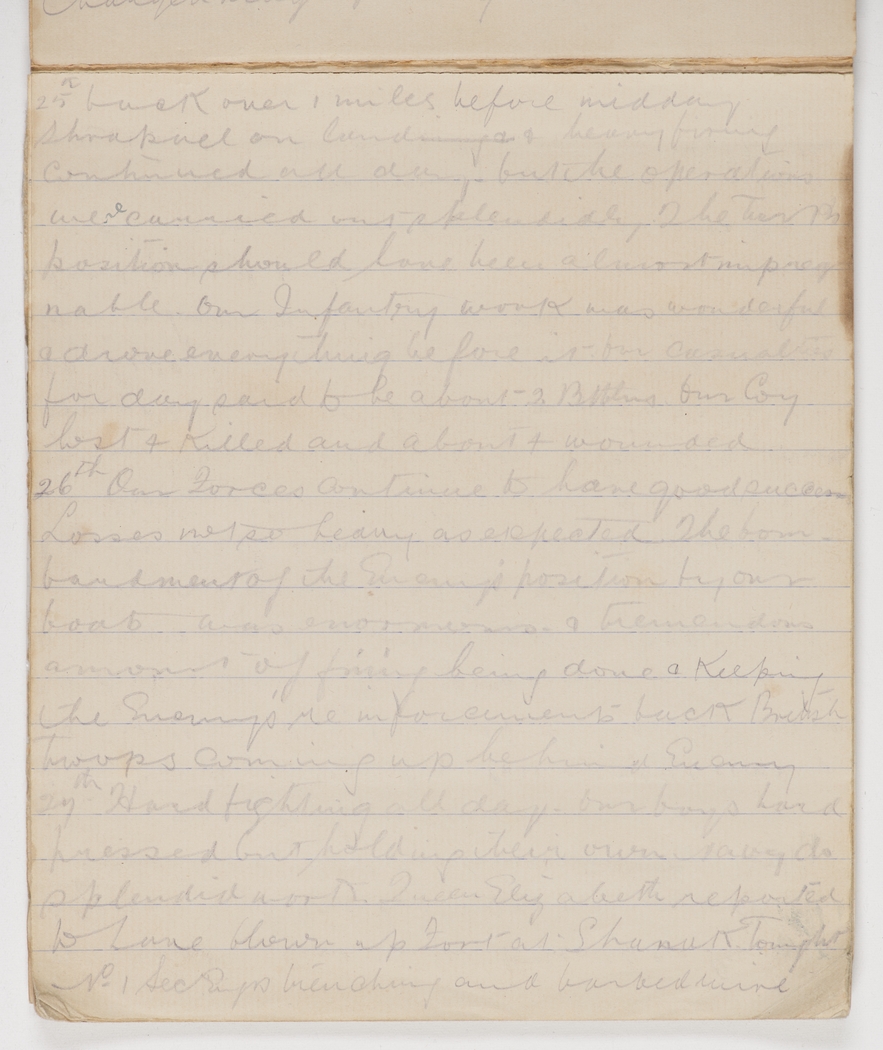 25th back over 1 miles before midday
shrapnel on landings & heavy firing
continued all day, but the operations
were carried out splendidly, The
position should have been almost impreg
nable. Our Infantry work was wonderful
& drove everything before it our casualties
for day said to be about 2 Btlns Our Coy
lost 4 Killed and about 4 wounded
26th Our Forces continue to have good success
Losses not so heavy as expected. The bom-
bardment of the Enemy's position by our
boats was enormous. a tremendous
amount of firing being done & Keeping
the Enemy's reinforcements back British
troops coming up behind Enemy
27th Hard fighting all day. Our boys hard
pressed but holding their own. Navy do
splendid work. Queen Elizabeth reported
to have blown up Fort at Shanak. Tonight
No. 1 Sec Engs trenching and barbed wire